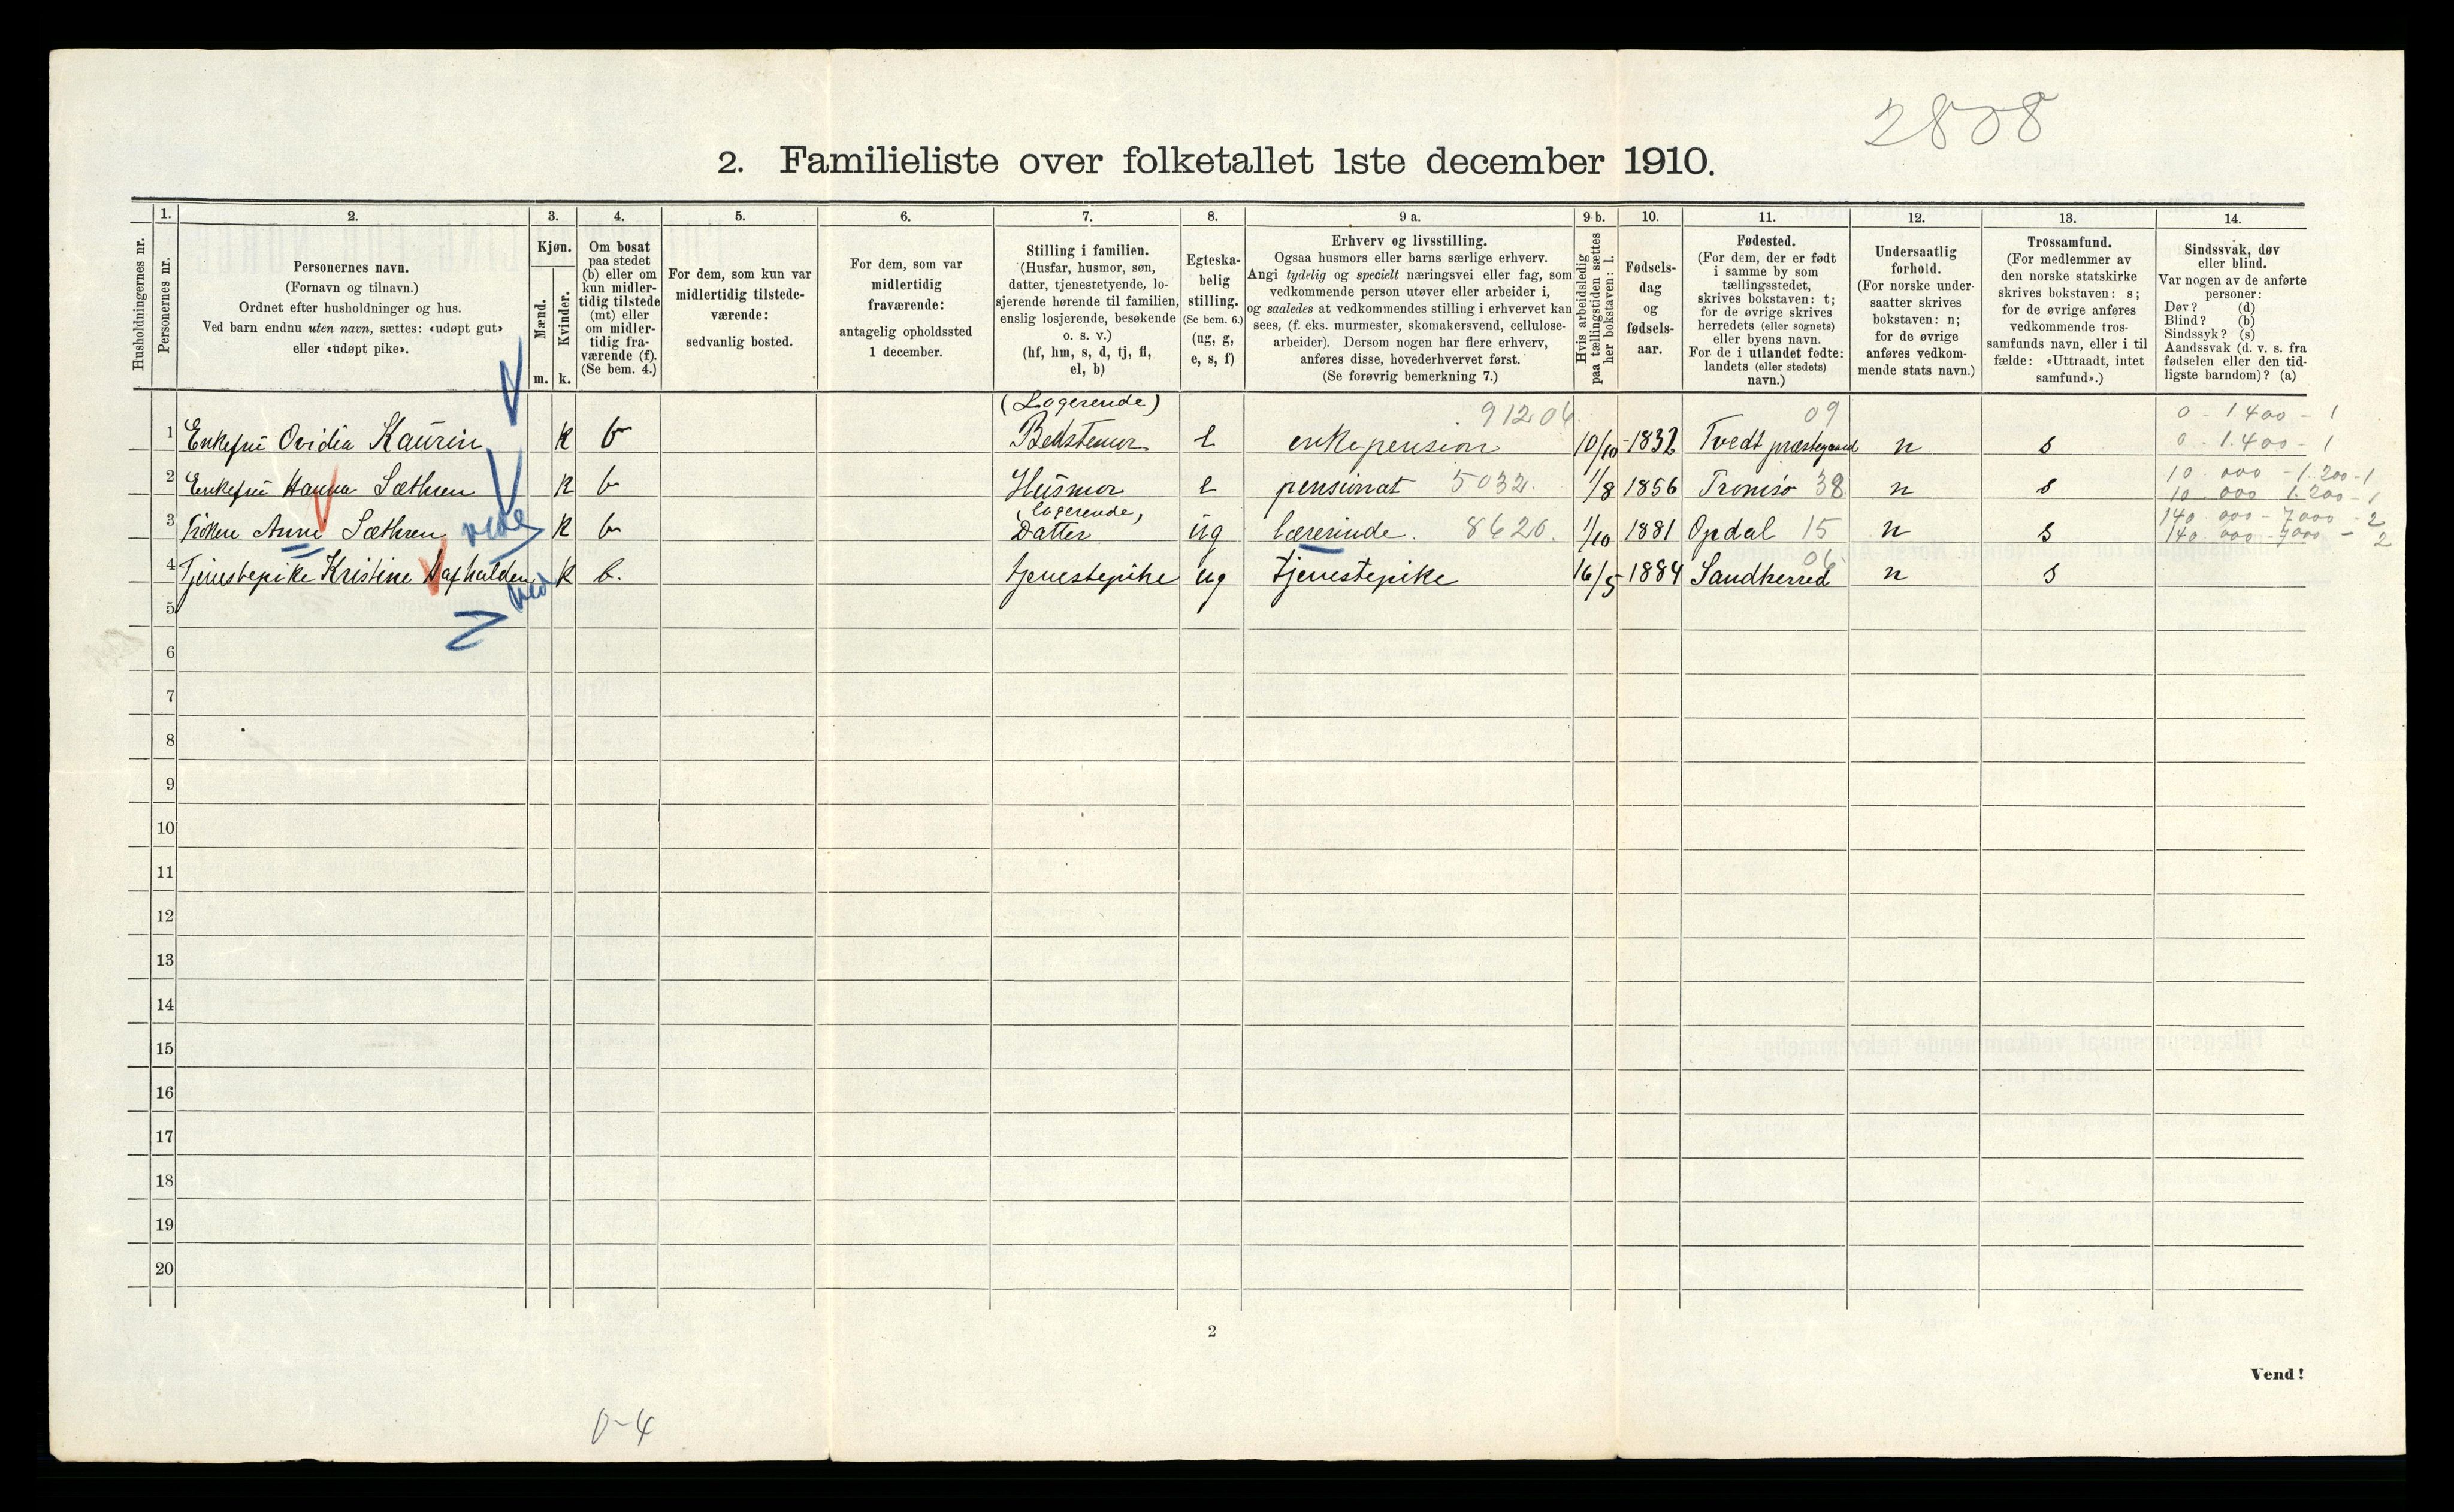 2808
2. Familieliste over folketallet 1ste december 1910.
1. 2. 3. 4. 5. 6. 7. 8. 9 a. 9 b. 10. 11. 12. 13. 14.
Husholdningernes nr.
Personernes nr.
Personernes navn.
(Fornavn og tilnavn.)
Ordnet efter husholdninger og hus.
Ved barn endnu uten navn, sættes: «udøpt gut»
eller «udøpt pike».
Kjøn.
Mænd.
Kvinder.
m. k.
Om bosat
paa stedet
(b) eller om
kun midler-
tidig tilstede
(mt) eller
om midler-
tidig fra-
værende (f).
(Se bem. 4.)
For dem, som kun var
midlertidig tilstede-
værende:
sedvanlig bosted.
For dem, som var
midlertidig
fraværende:
antagelig opholdssted
1 december.
Stilling i familien.
(Husfar, husmor, søn,
datter, tjenestetyende, lo-
sjerende hørende til familien,
enslig losjerende, besøkende
o. s. v.)
(hf, hm, s, d, tj, fl,
el, b)
Egteska-
belig
stilling.
(Se bem. 6.)
(ug, g,
e, s, f)
Erhverv og livsstilling.
Ogsaa husmors eller barns særlige erhverv.
Angi tydelig og specielt næringsvei eller fag, som
vedkommende person utøver eller arbeider i,
og saaledes at vedkommendes stilling i erhvervet kan
sees, (f. eks. murmester, skomakersvend, cellulose-
arbeider). Dersom nogen har flere erhverv,
anføres disse, hovederhvervet først.
(Se forøvrig bemerkning 7.)
Hvis arbeidsledig
paa tællingstiden sættes
her bokstaven: l.
Fødsels-
dag
og
fødsels-
aar.
Fødested.
(For dem, der er født
i samme by som
tællingsstedet,
skrives bokstaven: t;
for de øvrige skrives
herredets (eller sognets)
eller byens navn.
For de i utlandet fødte:
landets (eller stedets)
navn.)
Undersaatlig
forhold.
(For norske under-
saatter skrives
bokstaven: n;
for de øvrige
anføres vedkom-
mende stats navn.)
Trossamfund.
(For medlemmer av
den norske statskirke
skrives bokstaven: s;
for de øvrige anføres
vedkommende tros-
samfunds navn, eller i til
fælde: «Uttraadt, intet
samfund».)
Sindssvak, døv
eller blind.
Var nogen av de anførte
personer:
Døv? (d)
Blind? (b)
Sindssyk? (s)
Aandssvak (d. v. s. fra
fødselen eller den tid-
ligste barndom)? (a)
(Logerende) 91206 09 0 - 1.400 - 1
1 Enkefru Ovidia Kaurin k b Bedstemor e enkepension 10/10 - 1832 Tvedt præstegaard n s 0 - 1.400 - 1
10 000 - 1.200 - 1
2 Enkefru Hanna Sæthren k b Husmor e pensionat 5032. 1/8 1856 Tromsø 38 n s 10 000 1.200 - 1
logerende, 140 000 - 7000 - 2
3 Frøken Anni Sæthren k b Datter ug lærerinde. 8620. 1/10 1881 Opdal 15 n s 140 000 - 7000 - 2
06
4 Tjenestepike Kristine k b. tjenestepike ug tjenestepike 16/5 - 1884 Sandherred n s
5
6
7
8
9
10
11
12
13
14
15
16
17
18
19
20
2
Vend!
0-4